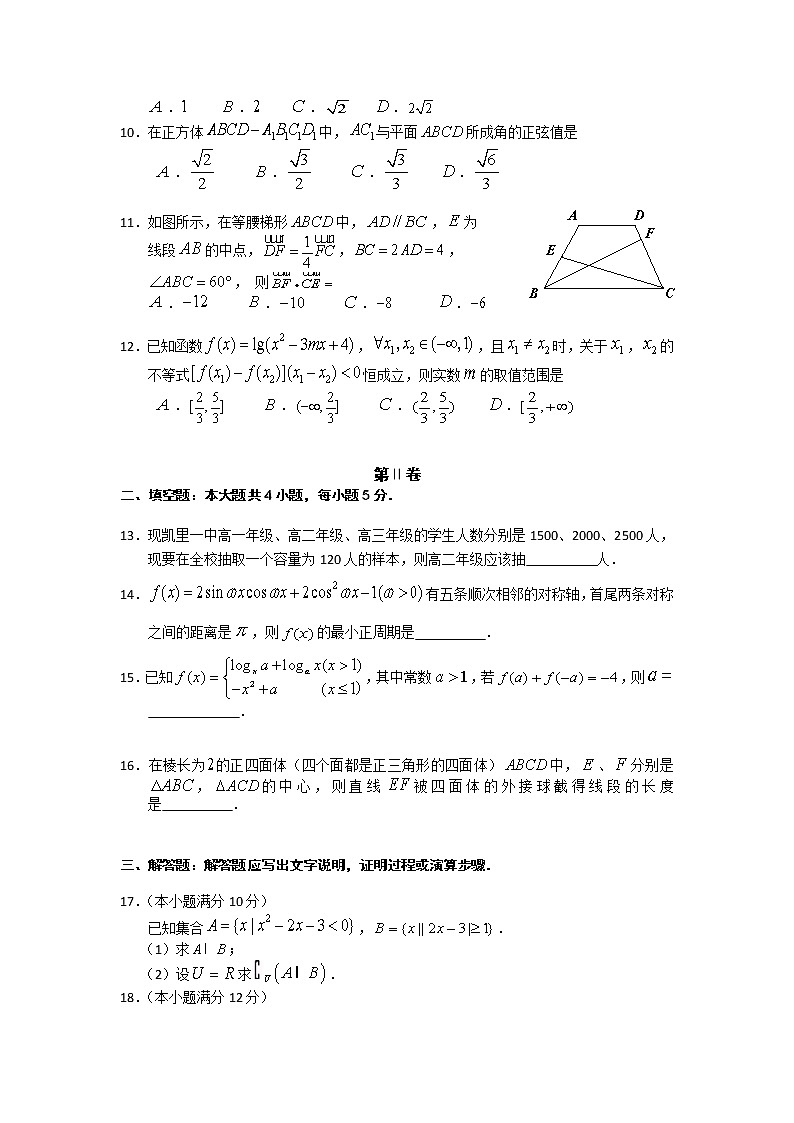 A．1 B．2 C．√2 D．2√2
10．在正方体ABCD－A₁B₁C₁D₁中，AC₁与平面ABCD所成角的正弦值是
A．√2/2 B．√3/2 C．√3/3 D．√6/3
11．如图所示，在等腰梯形ABCD中，AD//BC，E为
线段AB的中点，DF＝1/4 FC，BC＝2AD＝4，
∠ABC＝60°，则BF·CE＝
A．−12 B．−10 C．−8 D．−6
A D
F
E
B C
12．已知函数f(x)＝lg(x²−3mx＋4)，∀x₁,x₂∈(−∞,1)，且x₁≠x₂时，关于x₁，x₂的
不等式[f(x₁)−f(x₂)](x₁−x₂)<0恒成立，则实数m的取值范围是
A．[2/3,5/3] B．(−∞,2/3] C．(2/3,5/3) D．[2/3,＋∞)
第Ⅱ卷
二、填空题：本大题共4小题，每小题5分．
13．现凯里一中高一年级、高二年级、高三年级的学生人数分别是1500、2000、2500人，
现要在全校抽取一个容量为120人的样本，则高二年级应该抽__________人．
14．f(x)＝2sinωxcosωx＋2cos²ωx−1(ω>0)有五条顺次相邻的对称轴，首尾两条对称
之间的距离是π，则f(x)的最小正周期是__________．
15．已知f(x)＝{logₓa＋logₐx(x>1)
−x²＋a (x≤1)，其中常数a>1，若f(a)＋f(−a)＝−4，则a＝
_____________．
16．在棱长为2的正四面体（四个面都是正三角形的四面体）ABCD中，E、F分别是
△ABC，△ACD的中心，则直线EF被四面体的外接球截得线段的长度
是__________．
三、解答题：解答题应写出文字说明，证明过程或演算步骤．
17．（本小题满分10分）
已知集合A＝{x|x²−2x−3<0}，B＝{x||2x−3|≥1}．
（1）求A I B；
（2）设U＝R求∁U(A I B)．
18．（本小题满分12分）